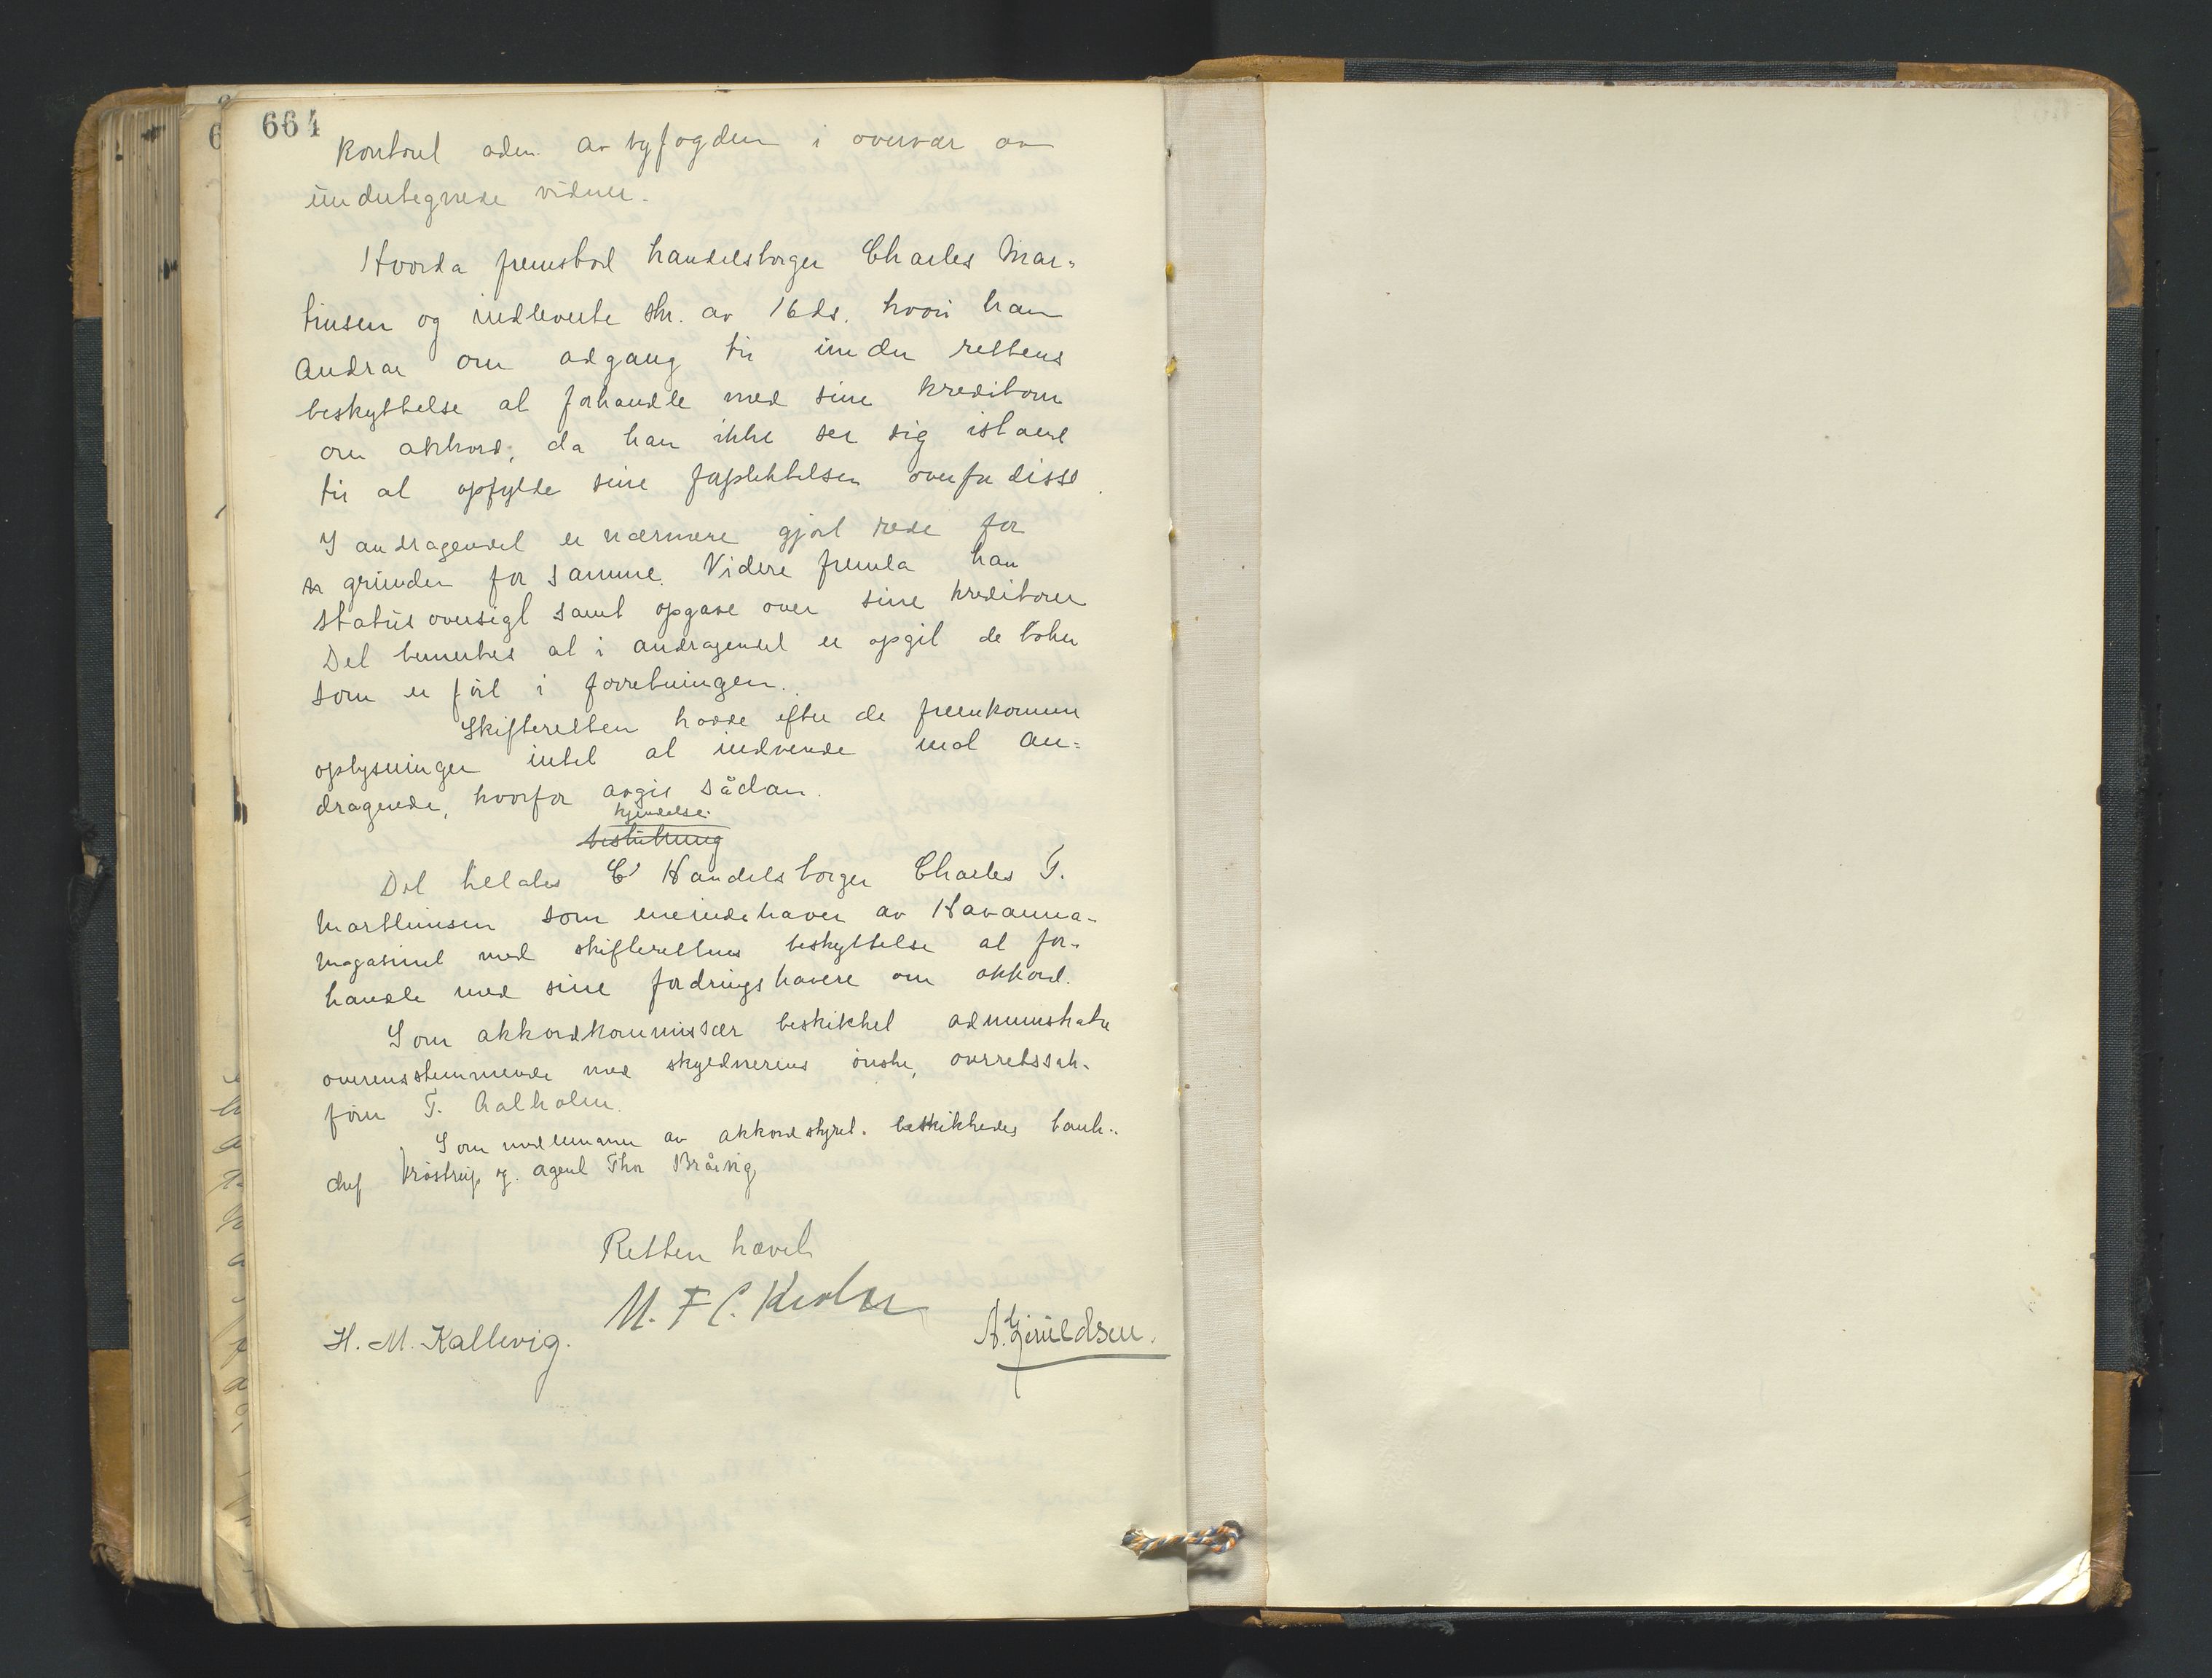 664
kontoret adm. av byfogden i overvær av
undertegnede vidner.
Hvorda fremstod handelsborger Charles Mar-
tinsen og indleverte skr. av 16 ds. hvori han
andrar om adgang til under rettens
beskyttelse at forhandle med sine kreditorer
om akkord, da han ikke ser sig istand
til at opfylde sine forpliktelser overfor disse.
I andragendet er nærmere gjort rede for
grunden for samme. Videre fremla han
statusoversigt samt opgave over sine kreditorer
Det bemerkes at i andragendet er opgit de bøker
som er ført i forretningen.
Skifteretten hadde efter de fremkomne
oplysninger intet at indvende mot an-
dragende, hvorfor avgis sådan.
kjendelse.
beslutning
Det tillates Handelsborger Charles T.
Marthinsen som eneindehaver av Havanna-
magasinet med skifterettens beskyttelse at for-
handle med sine fordringshavere om akkord.
Som akkordkommissær beskikket administrator
overensstemmende med skyldnerens ønske, overretssak-
fører T. Aalholm.
Som medlemmer av akkordstyret beskikkedes bank-
chef Krøstrup og agent Thor Bråvig
Retten hævet
M. F C. Krohn
H. M. Kallevig.